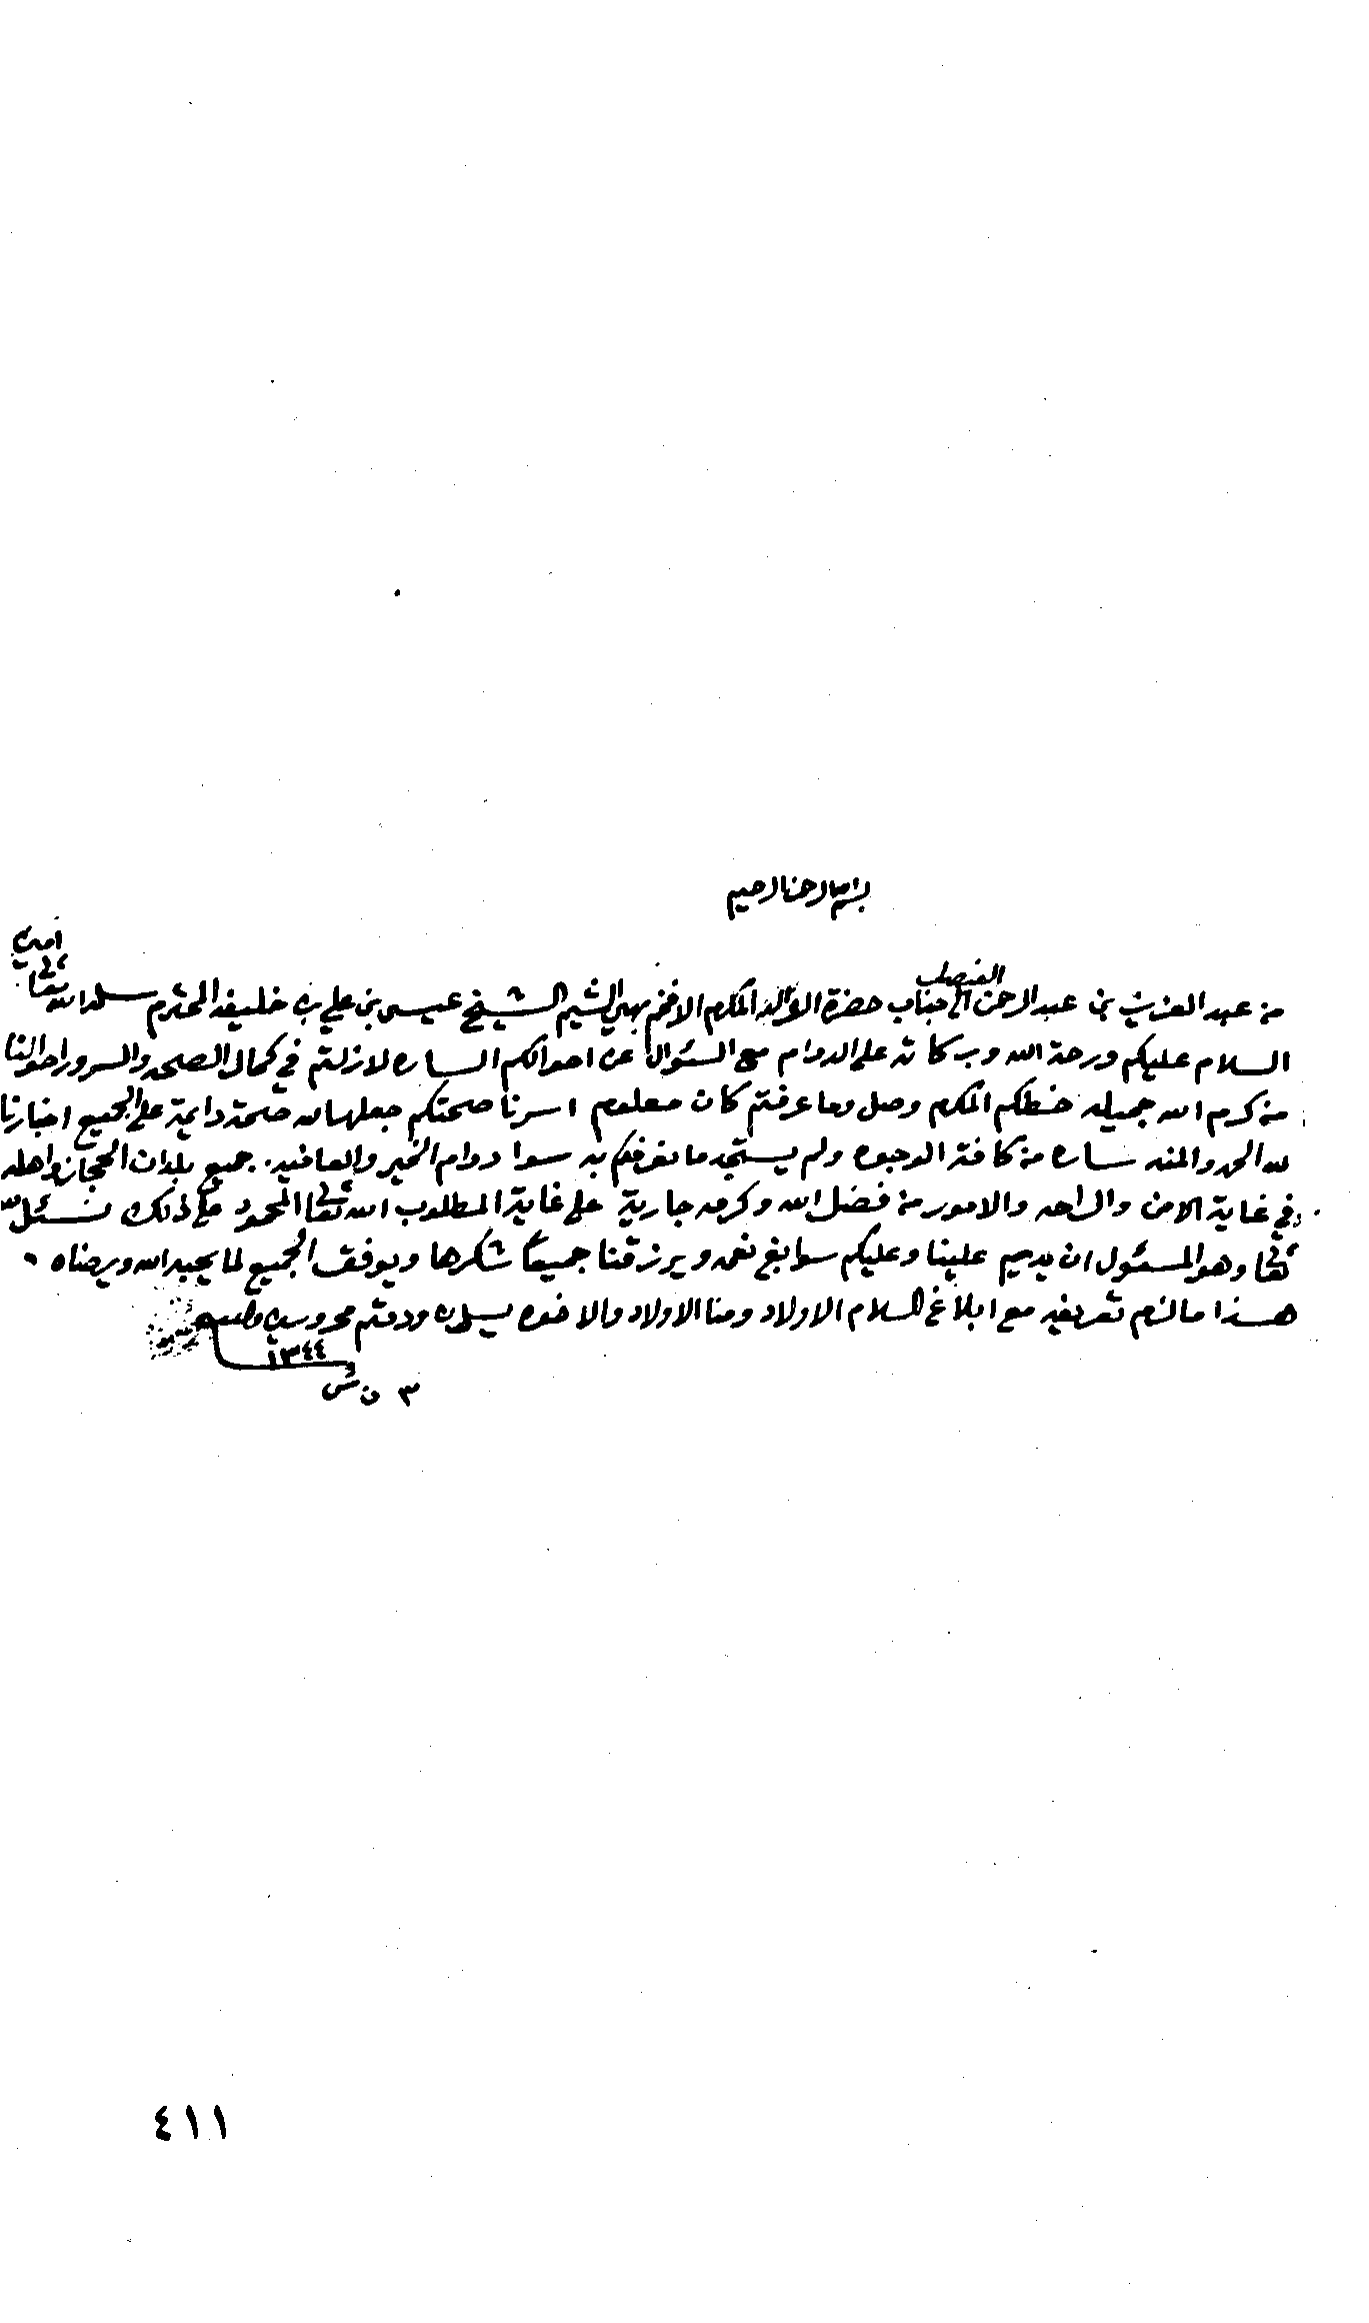 بسم الله الرحمن الرحيم
من عبد العزيز بن عبد الرحمن الفيصل الى جناب حضرة الوالد المكرم الافخم بهي الشيم الشيخ عيسى بن علي بن خليفه المحترم سلمه الله تعالى امين
السلام عليكم ورحمة الله وبركاته على الدوام مع السئوال عن احوالكم الساره لازلتم في كمال الصحه والسرور احوالنا
من كرم الله جميله خطكم المكرم وصل وما عرفتم كان معلوم اسرنا صحتكم جعلها الله صحة دايمة على الجميع اخبارنا
لله الحمد والمنه ساره من كافة الوجوه ولم يستجد ما نعرفكم به سوا دوام الخير والعافيه. جميع بلدان الحجاز واهله
في غاية الامن والراحه والامور من فضل الله وكرمه جارية على غاية المطلوب الله تعالى المحمود على ذلك نسئل الله
تعالى وهو المسئول ان يديم علينا وعليكم سوابغ نعمه ويرزقنا جميعاً شكرها ويوفق الجميع لما يحبه الله ويرضاه
هذا مالزم تعريفه مع ابلاغ السلام الاولاد ومنا الاولاد والاخوه يسلمون ودمتم محروسين والسلام
١٣٤٤
٣ ن ش
٤١١